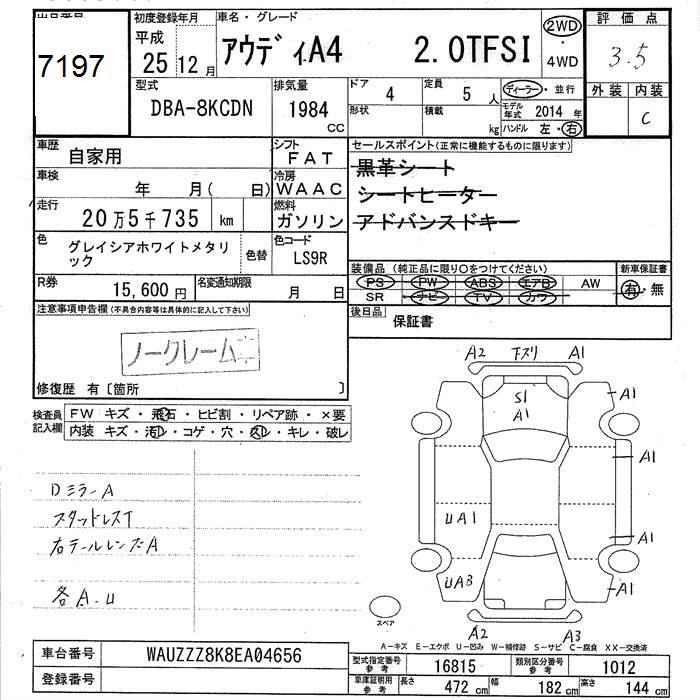 7197
初度登録年月
平成
25 12 月
車名・グレード
アウディA4 2.0TFSI
2WD
・
4WD
評価点
3.5
外装 内装
C
型式
DBA-8KCDN
排気量
1984
CC
ドア
4
定員
5 人
形状
積載
kg
ディーラー・並行
モデル年式 2014 年
ハンドル 左・右
車歴
自家用
シフト
FAT
車検
年 月( 日)
冷房
WAAC
走行
20 万 5 千 735 km
燃料
ガソリン
色
グレイシアホワイトメタリ
ック
色替
色コード
LS9R
R券
15,600 円
名変通知期限
月 日
セールスポイント(正常に機能するものに限ります)
黒革シート
シートヒーター
アドバンスドキー
装備品(純正品に限り○をつけてください)
PS PW ABS エアB AW
SR ナビ TV カワ
新車保証書
有・無
後日品
保証書
注意事項申告欄(不具合内容等は具体的に記入して下さい)
ノークレーム
修復歴 有〔箇所 〕
検査員
記入欄
FW キズ・飛石・ヒビ割・リペア跡・×要
内装 キズ・汚レ・コゲ・穴・スレ・キレ・破レ
DミラーA
スタッドレスT
右テールレンズA
各A.U
A2 下ズリ A1
S1
A1
A1
A1
UA1
A1
UA3
A1
A2 A3
スペア
A-キズ E-エクボ U-凹み W-補修跡 S-サビ C-腐食 XX-交換済
車台番号
WAUZZZ8K8EA04656
登録番号
型式指定番号
参考
16815
類別区分番号
参考
1012
車庫証明用
参考
長さ 472 cm 幅 182 cm 高さ 144 cm